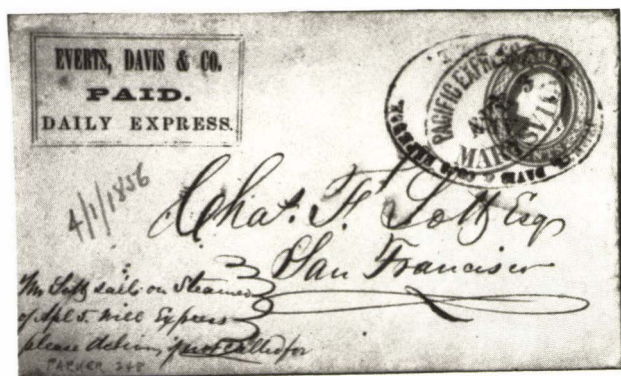 EVERTS, DAVIS & CO.
PAID.
DAILY EXPRESS.
PACIFIC EXPRESS
MARYSVILLE
DAVIS & CO'S EXPRESS
4/1/1856
Chas. F. Lott Esq
San Francisco
Mr Lott sails on Steamer
of Apl 5. Will Express
please deliver, if not called for
PARKER 248